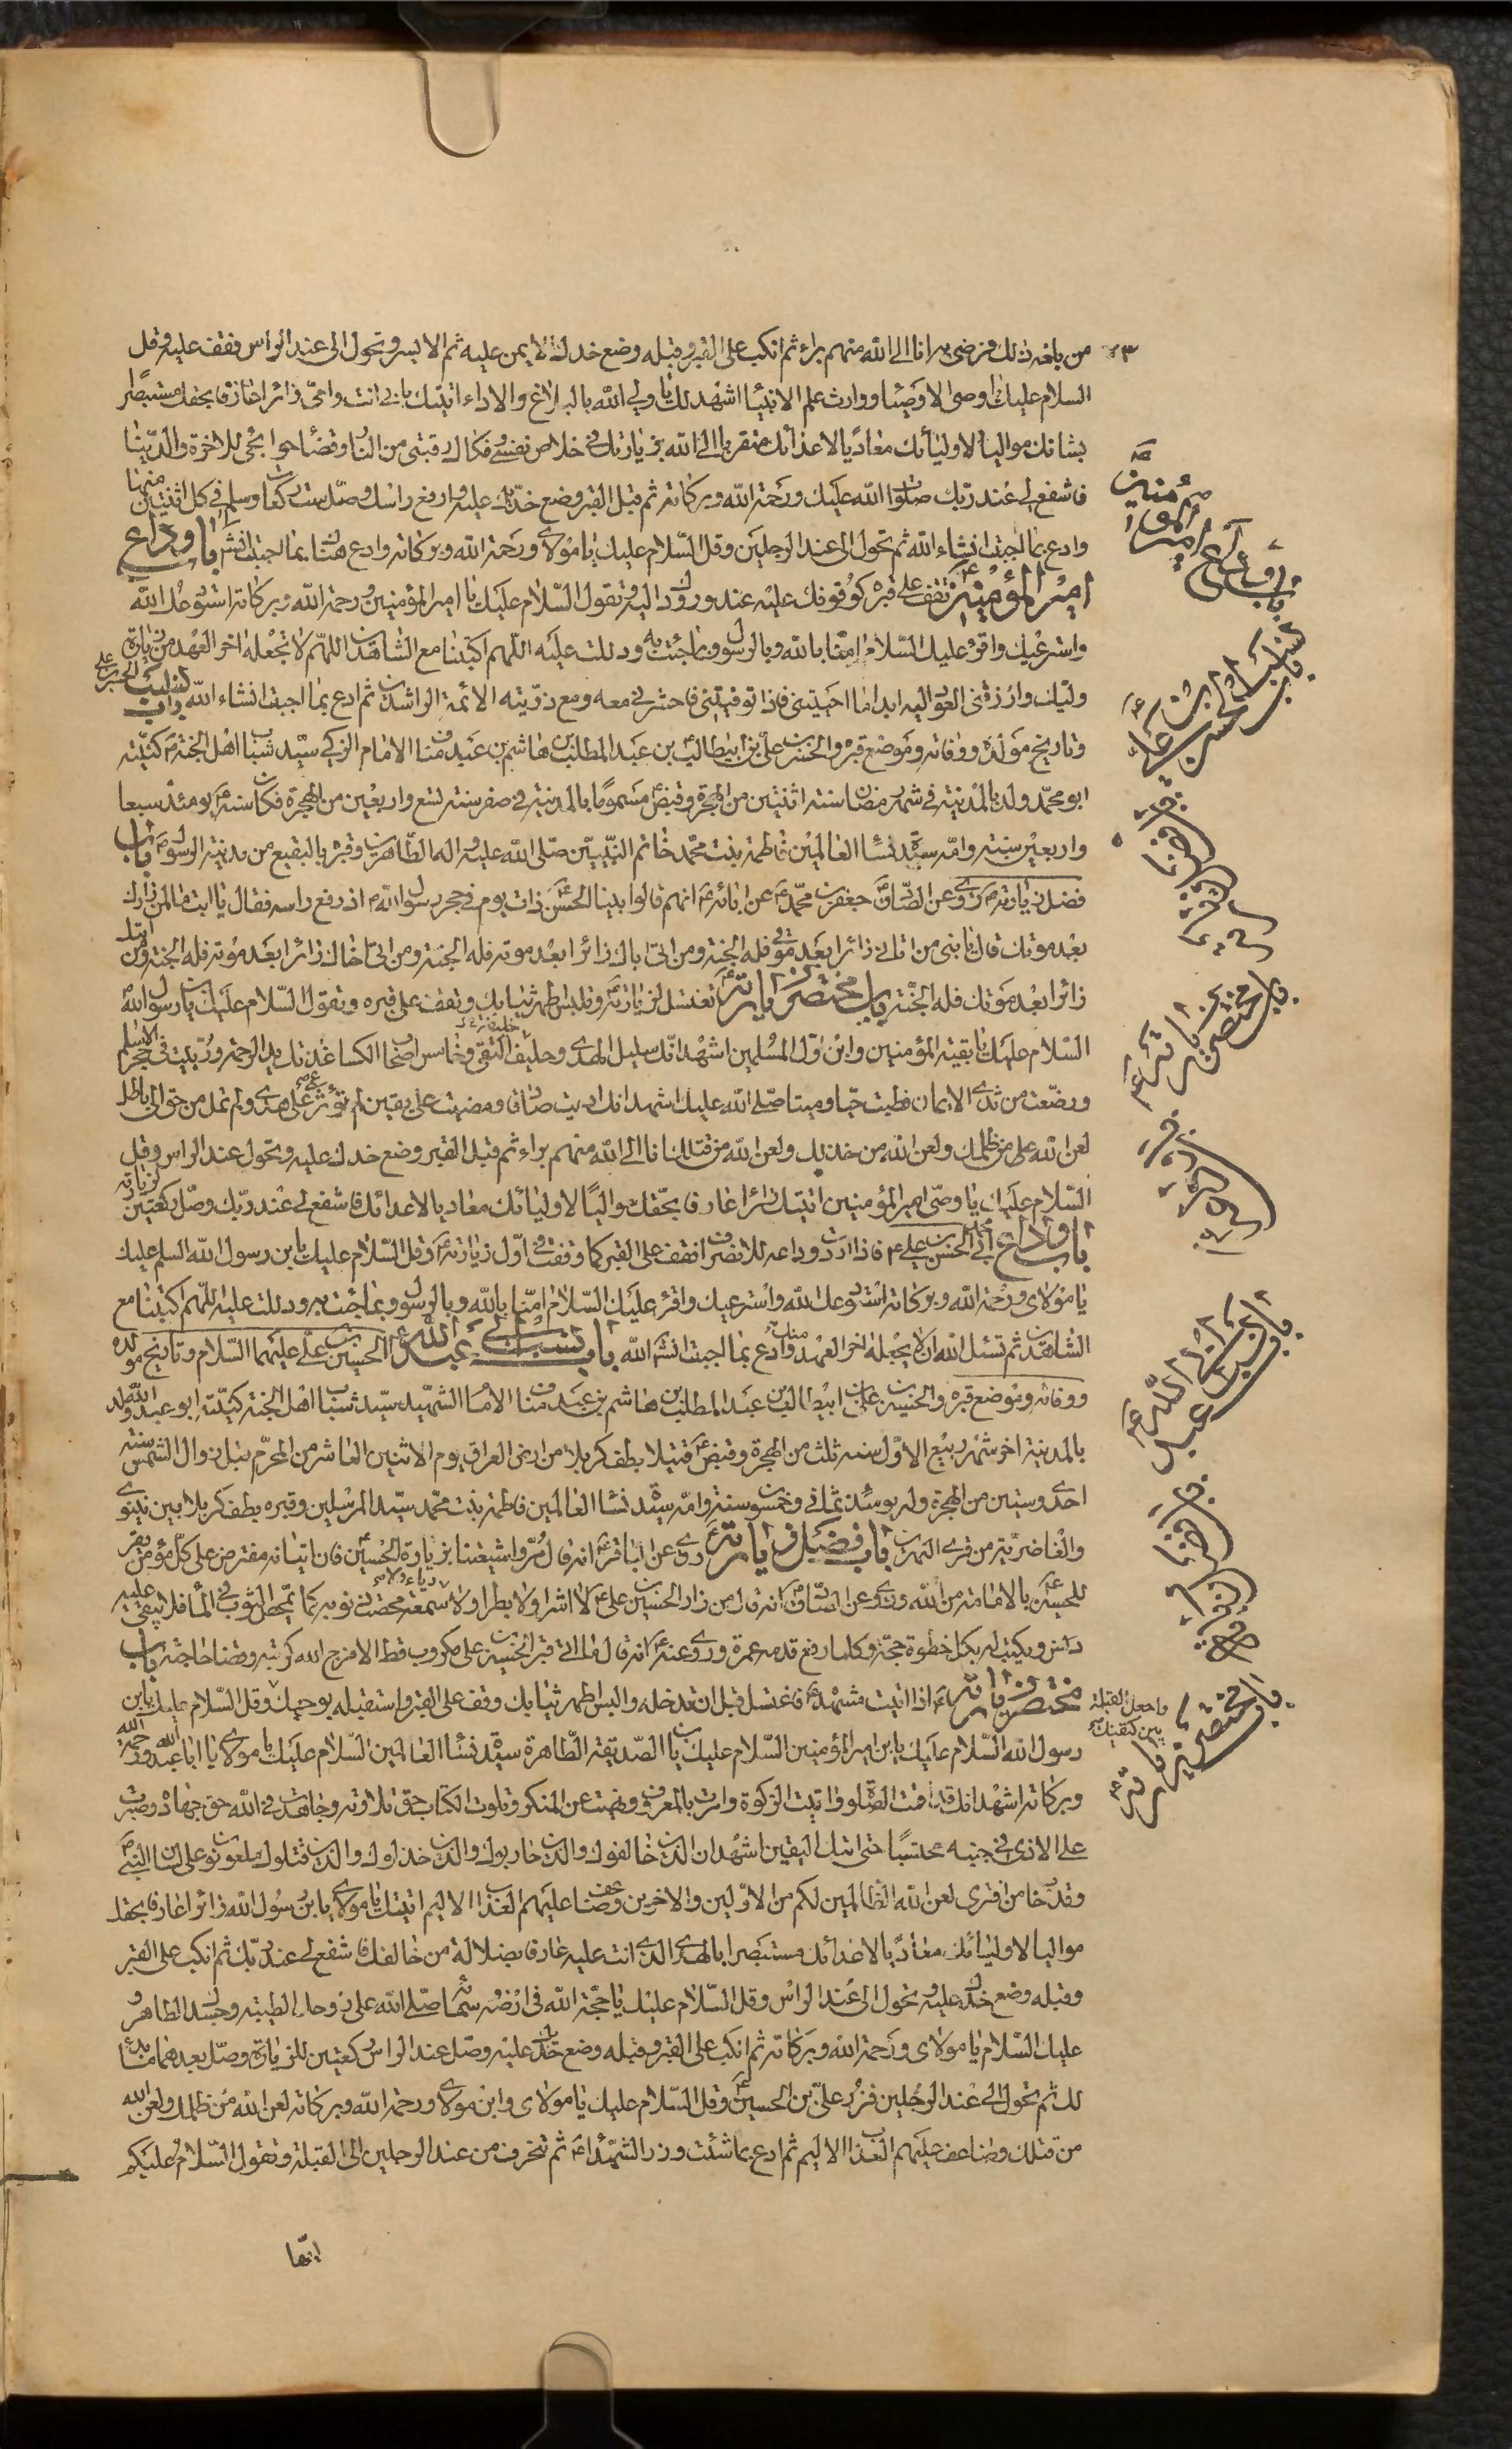 من بلغه ذلك فرضى به انا الى الله منهم براء ثم انكب على القبر وقبله وضع خدك الايمن عليه ثم الايسر وتحول الى عند الراس فقف عليه وقل
السلام عليك يا وصى الاوصياء ووارث علم الانبياء اشهد لك يا ولي الله بالبلاغ والاداء اتيتك بابي انت وامّي زائرا عارفا بحقك مستبصرا
بشانك مواليا لاوليائك معاديا لاعدائك متقربا الى الله بزيارتك في خلاص نفسي وفكاك رقبتي من النار وقضاء حوائجى للاخرة والدنيا
فاشفع لي عند ربك صلوات الله عليك ورحمة الله وبركاته ثم قبل القبر وضع خديك عليه وارفع راسك وصل ست ركعات وسلم في كل اثنتين منها
وادع بما احببت انشاء الله ثم تحول الى عند الرجلين وقل السّلام عليك يا مولاى ورحمة الله وبركاته وادع هناك بما احببت انش باب وداع
امير المؤمنين ع تقف على قبره كوقوفك عليه عند ورودك اليه وتقول السّلام عليك يا امير المؤمنين ورحمة الله وبركاته استودعك الله
واسترعيك واقرء عليك السّلام امنّا بالله وبالرسول وبما جئت به ودللت عليه اللّهم اكتبنا مع الشاهدين اللّهم لا تجعله اخر العهد من زيارة
وليك وارزقنى العود اليه ابدا ما احييتنى فاذا توفيتنى فاحشرني معه ومع ذرّيته الائمة الراشدين ثم ادع بما احببت انشاء الله باب نسب الحسن بن على
وتاريخ مولده ووفاته وموضع قبره والحسن بن علي بن ابيطالب بن عبد المطلب بن هاشم بن عبد مناف الامام الزكي سيّد شباب اهل الجنة كنيته
ابو محمّد ولد بالمدينة في شهر رمضان سنة اثنتين من الهجرة وقبض مسموما بالمدينة في صفر سنة تسع واربعين من الهجرة فكان سنه يومئذ سبعا
واربعين سنة وامّه سيّدة نساء العالمين فاطمة بنت محمّد خاتم النبيّين صلّى الله عليه واله الطاهرين وقبره بالبقيع من مدينة الرسول باب
فضل زيارته روى عن الصّادق جعفر بن محمّد عن ابائه انهم قالوا بينا الحسن ذات يوم في حجر رسول الله اذ رفع راسه فقال يا ابت ما لمن زارك
بعد موتك قال يا بنى من اتاني زائرا بعد موتي فله الجنة ومن اتى اباك زائرا بعد موته فله الجنة ومن اتى اخاك زائرا بعد موته فله الجنة ومن اتاك
زائرا بعد موتك فله الجنّة باب مختصر زيارته تغتسل لزيارته وتلبس اطهر ثيابك وتقف على قبره وتقول السّلام عليك يا بن رسول الله
السّلام عليك يا بقية المؤمنين وابن اوّل المسلمين اشهد انّك سليل الهدى وحليف التقى وخامس اصحاب الكسا غذتك يد الرحمة وربّيت في حجر الاسلام
ورضعت من ثدى الايمان فطبت حيّا وميتا صلّى الله عليك اشهد انك اديت صادقا ومضيت على يقين لم تؤثر عمى على هدى ولم تمل من حق الى باطل
لعن الله على من ظلمك ولعن الله من خذلك ولعن الله من قتلك انا الى الله منهم براء ثم قبل القبر وضع خدك عليه وتحول عند الراس وقل
السّلام عليك يا وصّى امير المؤمنين اتيتك زائرا عارفا بحّقك مواليًا لاوليائك معاديا لاعدائك فاشفع لي عند ربّك وصل ركعتين لزيارته
باب وداع ابى محمد الحسن بن على ع فاذا اردت وداعه للانصراف فقف على القبر كما وقفت في اوّل زيارته وقل السّلام عليك يا بن رسول الله السلم عليك
يا مولاى ورحمة الله وبركاته استودعك الله واسترعيك واقرء عليك السّلام امنّا بالله وبالرسول وبما جئت به ودللت عليه اللّهم اكتبنا مع
الشاهدين ثم تسئل الله ان لا يجعله اخر العهد منك وادع بما احببت انشاء الله باب نسب ابى عبد الله الحسين بن علي عليهما السّلام وتاريخ مولده
ووفاته وموضع قبره والحسين بن علي بن ابيطالب بن عبد المطلب بن هاشم بن عبد مناف الامام الشهيد سيّد شباب اهل الجنة كنيته ابو عبد الله ولد
بالمدينة اخر شهر ربيع الاوّل سنه ثلث من الهجرة وقبض قتيلا بطف كربلا من ارض العراق يوم الاثنين العاشر من المحرّم قبل زوال الشمس سنة
احدى وستين من الهجرة وله يومئذ ثماني وخمسون سنة وامّه سيّدة نساء العالمين فاطمة بنت محمّد سيّد المرسلين وقبره بطف كربلا بين نينوى
والغاضريّة من قرى النهرين باب فضل زيارته روى عن الباقر انه قال مروا شيعتنا بزيارة الحسين فان اتيانه مفترض على كلّ مؤمن يقر
للحسين بالامامة من الله وروى عن الصادق انه قال من زار الحسين بن على لا اشرا ولا بطرا ولا رياء ولا سمعة محصت ذنوبه كما يمحص الثوب في الماء فلا يبقى عليه
دنس ويكتب له بكل خطوة حجّة وكلما رفع قدمه عمرة وروى عنه انه قال ما اتى قبر الحسين بن على مكروب قط الا فرج الله كربته وقضا حاجته باب
مختصر زيارته ع اذا اتيت مشهده فاغتسل قبل ان تدخله والبس اطهر ثيابك وقف على القبر واستقبله بوجهك وقل السّلام عليك يا بن
رسول الله السّلام عليك يا بن امير المؤمنين السّلام عليك يا بن الصّديقة الطّاهرة سيّدة نساء العالمين السّلام عليك يا مولاى يا ابا عبد الله ورحمة الله
وبركاته اشهد انك قد اقمت الصّلوة واتيت الزكوة وامرت بالمعروف ونهيت عن المنكر وتلوت الكتاب حق تلاوته وجاهدت في الله حق جهاده وصبرت
على الاذى في جنبه محتسبًا حتى اتاك اليقين اشهد ان الذين خالفوك والذين حاربوك والذين خذلوك والذين قتلوك ملعونون على لسان النبي
وقد خاب من افترى لعن الله الظالمين لكم من الاوّلين والاخرين وضاعف عليهم العذاب الاليم اتيتك يا مولاى يا بن رسول الله زائرا عارفا بحقك
مواليا لاوليائك معاديًا لاعدائك مستبصرا بالهدى الذى انت عليه عارفا بضلالة من خالفك فاشفع لي عند ربّك ثم انكب على القبر
وقبله وضع خدك عليه وتحول الى عند الراس وقل السّلام عليك يا حجّة الله فى ارضه وسمائه صلّى الله على روحك الطيبة وجسدك الطاهر و
عليك السّلام يا مولاى ورحمة الله وبركاته ثم انكب على القبر وقبله وضع خدك عليه وصل عند الراس ركعتين للزيارة وصل بعدهما ما بدا
لك ثم تحول الى عند الرجلين فزر علىّ بن الحسين وقل السّلام عليك يا مولاى وابن مولاى ورحمة الله وبركاته لعن الله من ظلمك ولعن الله
من قتلك وضاعف عليهم العذاب الاليم ثم ادع بما شئت وزر الشهداء ثم تنحرف من عند الرجلين الى القبلة وتقول السّلام عليكم
ايّها
٧٣
باب وداع امير المؤمنين
باب نسب الحسن بن على ع
باب مختصر زيارته ع
باب نسب ابى عبد الله ع
باب مختصر زيارته ع
واجعل القبلة
بين كتفيك